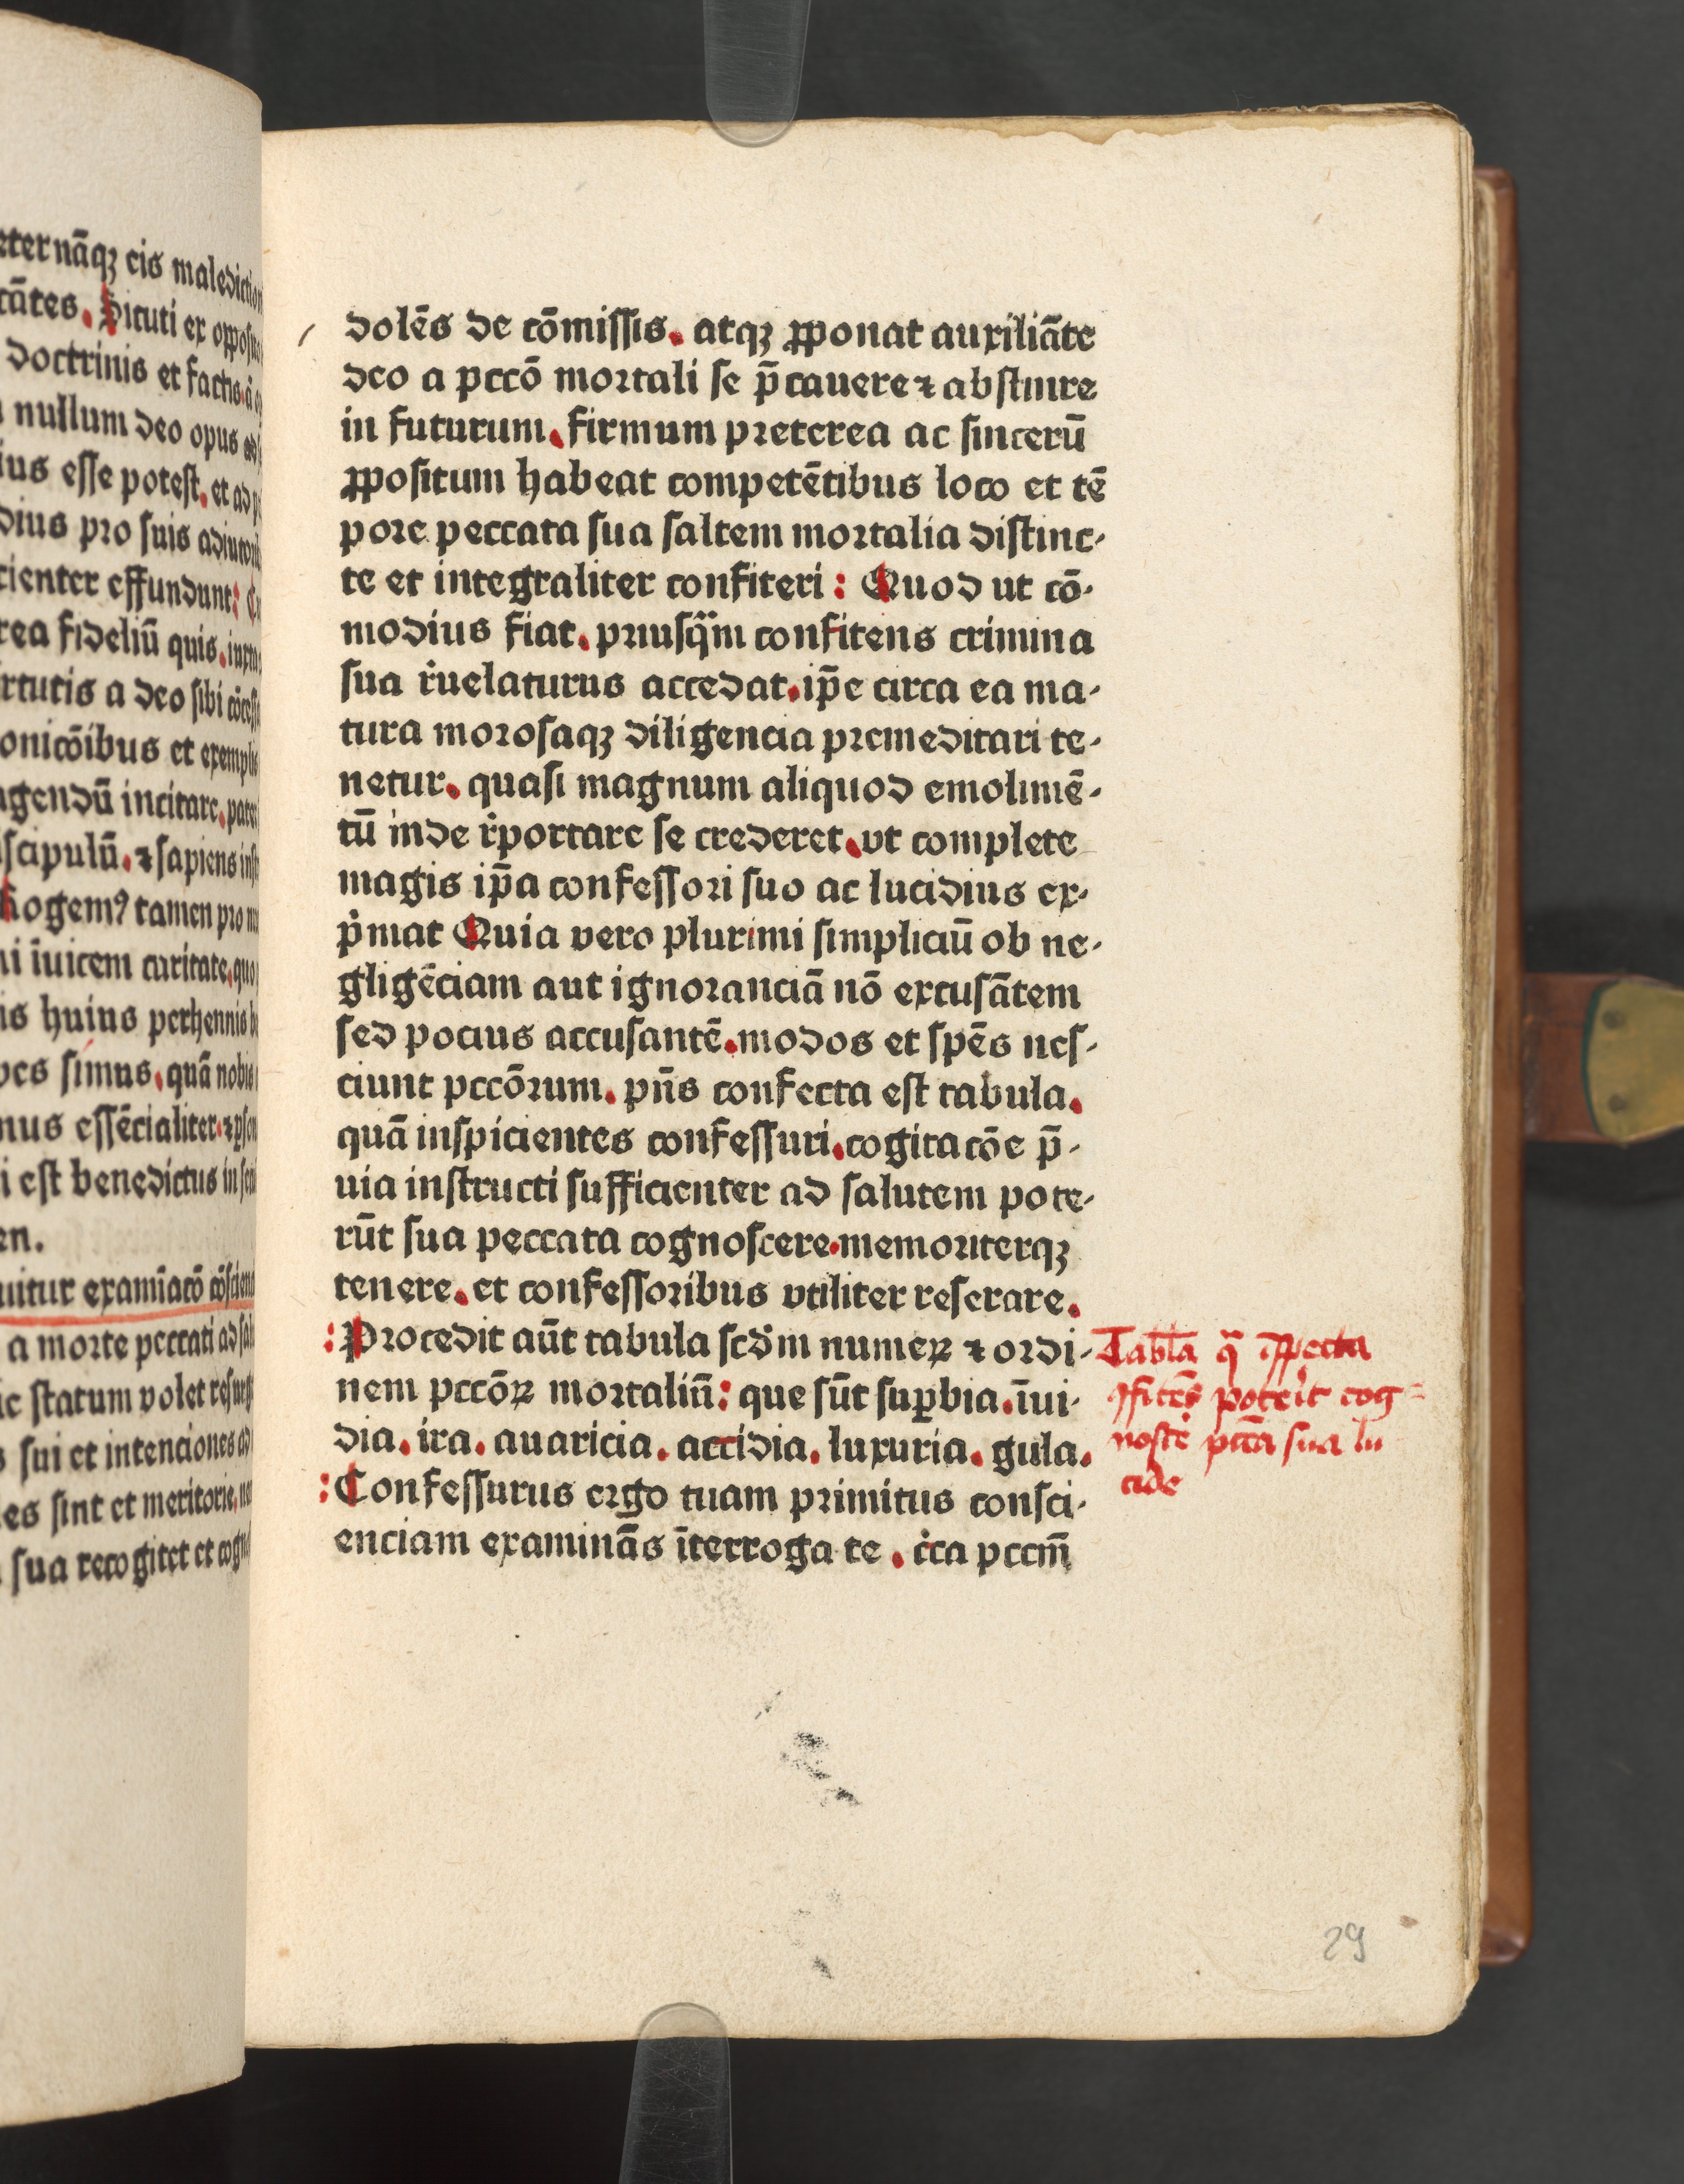 eternāqꝫ eis malediction
tātes. Sicuti ex opposito
doctrinis et factis. a
nullum deo opus ad
ius esse potest. et ad p
dius pro suis adiutorib
cienter effundunt:
rea fideliū quis. iuxta
rtutis a deo sibi cōcess
onicōibus et exemplis
agendū incitare. pater
scipulū. ⁊ sapiens insi
Rogemꝰ tamen pro
ni īuicem caritate. quo
is huius perhennis b
pes simus. quā nobis
mus essēcialiter. ⁊ psen
i est benedictus in secu
en.
uitur examīacō cōscienc
a morte peccati ad salu
ic statum volet resurge
s sui et intenciones ad
les sint et meritorie. ne
sua recogitet et cogno
dolēs de cōmissis. atqꝫ ꝓponat auxiliāte
deo a pccō mortali se p̄cauere ⁊ abstinere
in futurum. firmum preterea ac sincerū
ꝓpositum habeat competētibus loco et tē
pore peccata sua saltem mortalia distinc-
te et integraliter confiteri: Quod ut cō-
modius fiat. priusqͣm confitens crimina
sua r̄uelaturus accedat. ip̄e circa ea ma-
tura morosaqꝫ diligencia premeditari te-
netur. quasi magnum aliquod emolimē-
tū inde r̄portare se crederet. vt complete
magis ip̄a confessori suo ac lucidius ex-
pͥmat Quia vero plurimi simpliciū ob ne-
gligēciam aut ignoranciā nō excusātem
sed pocius accusantē. modos et spēs nes-
ciunt pccōrum. pn̄s confecta est tabula.
quā inspicientes confessuri. cogitacōe p̄-
uia instructi sufficienter ad salutem pote-
rūt sua peccata cognoscere. memoriterqꝫ
tenere. et confessoribus vtiliter reserare.
: Procedit aūt tabula scd̄m numeꝝ ⁊ ordi-
nem pccōꝝ mortaliū: que sūt suꝑbia. īui-
dia. ira. auaricia. accidia. luxuria. gula.
: Confessurus ergo tuam primitus consci-
enciam examinās īterroga te. cͥca pccm̄
Tabl̄a q̄ īspecta
ꝯfitēs poterit cog-
noscē pctā sua lu
cide
29